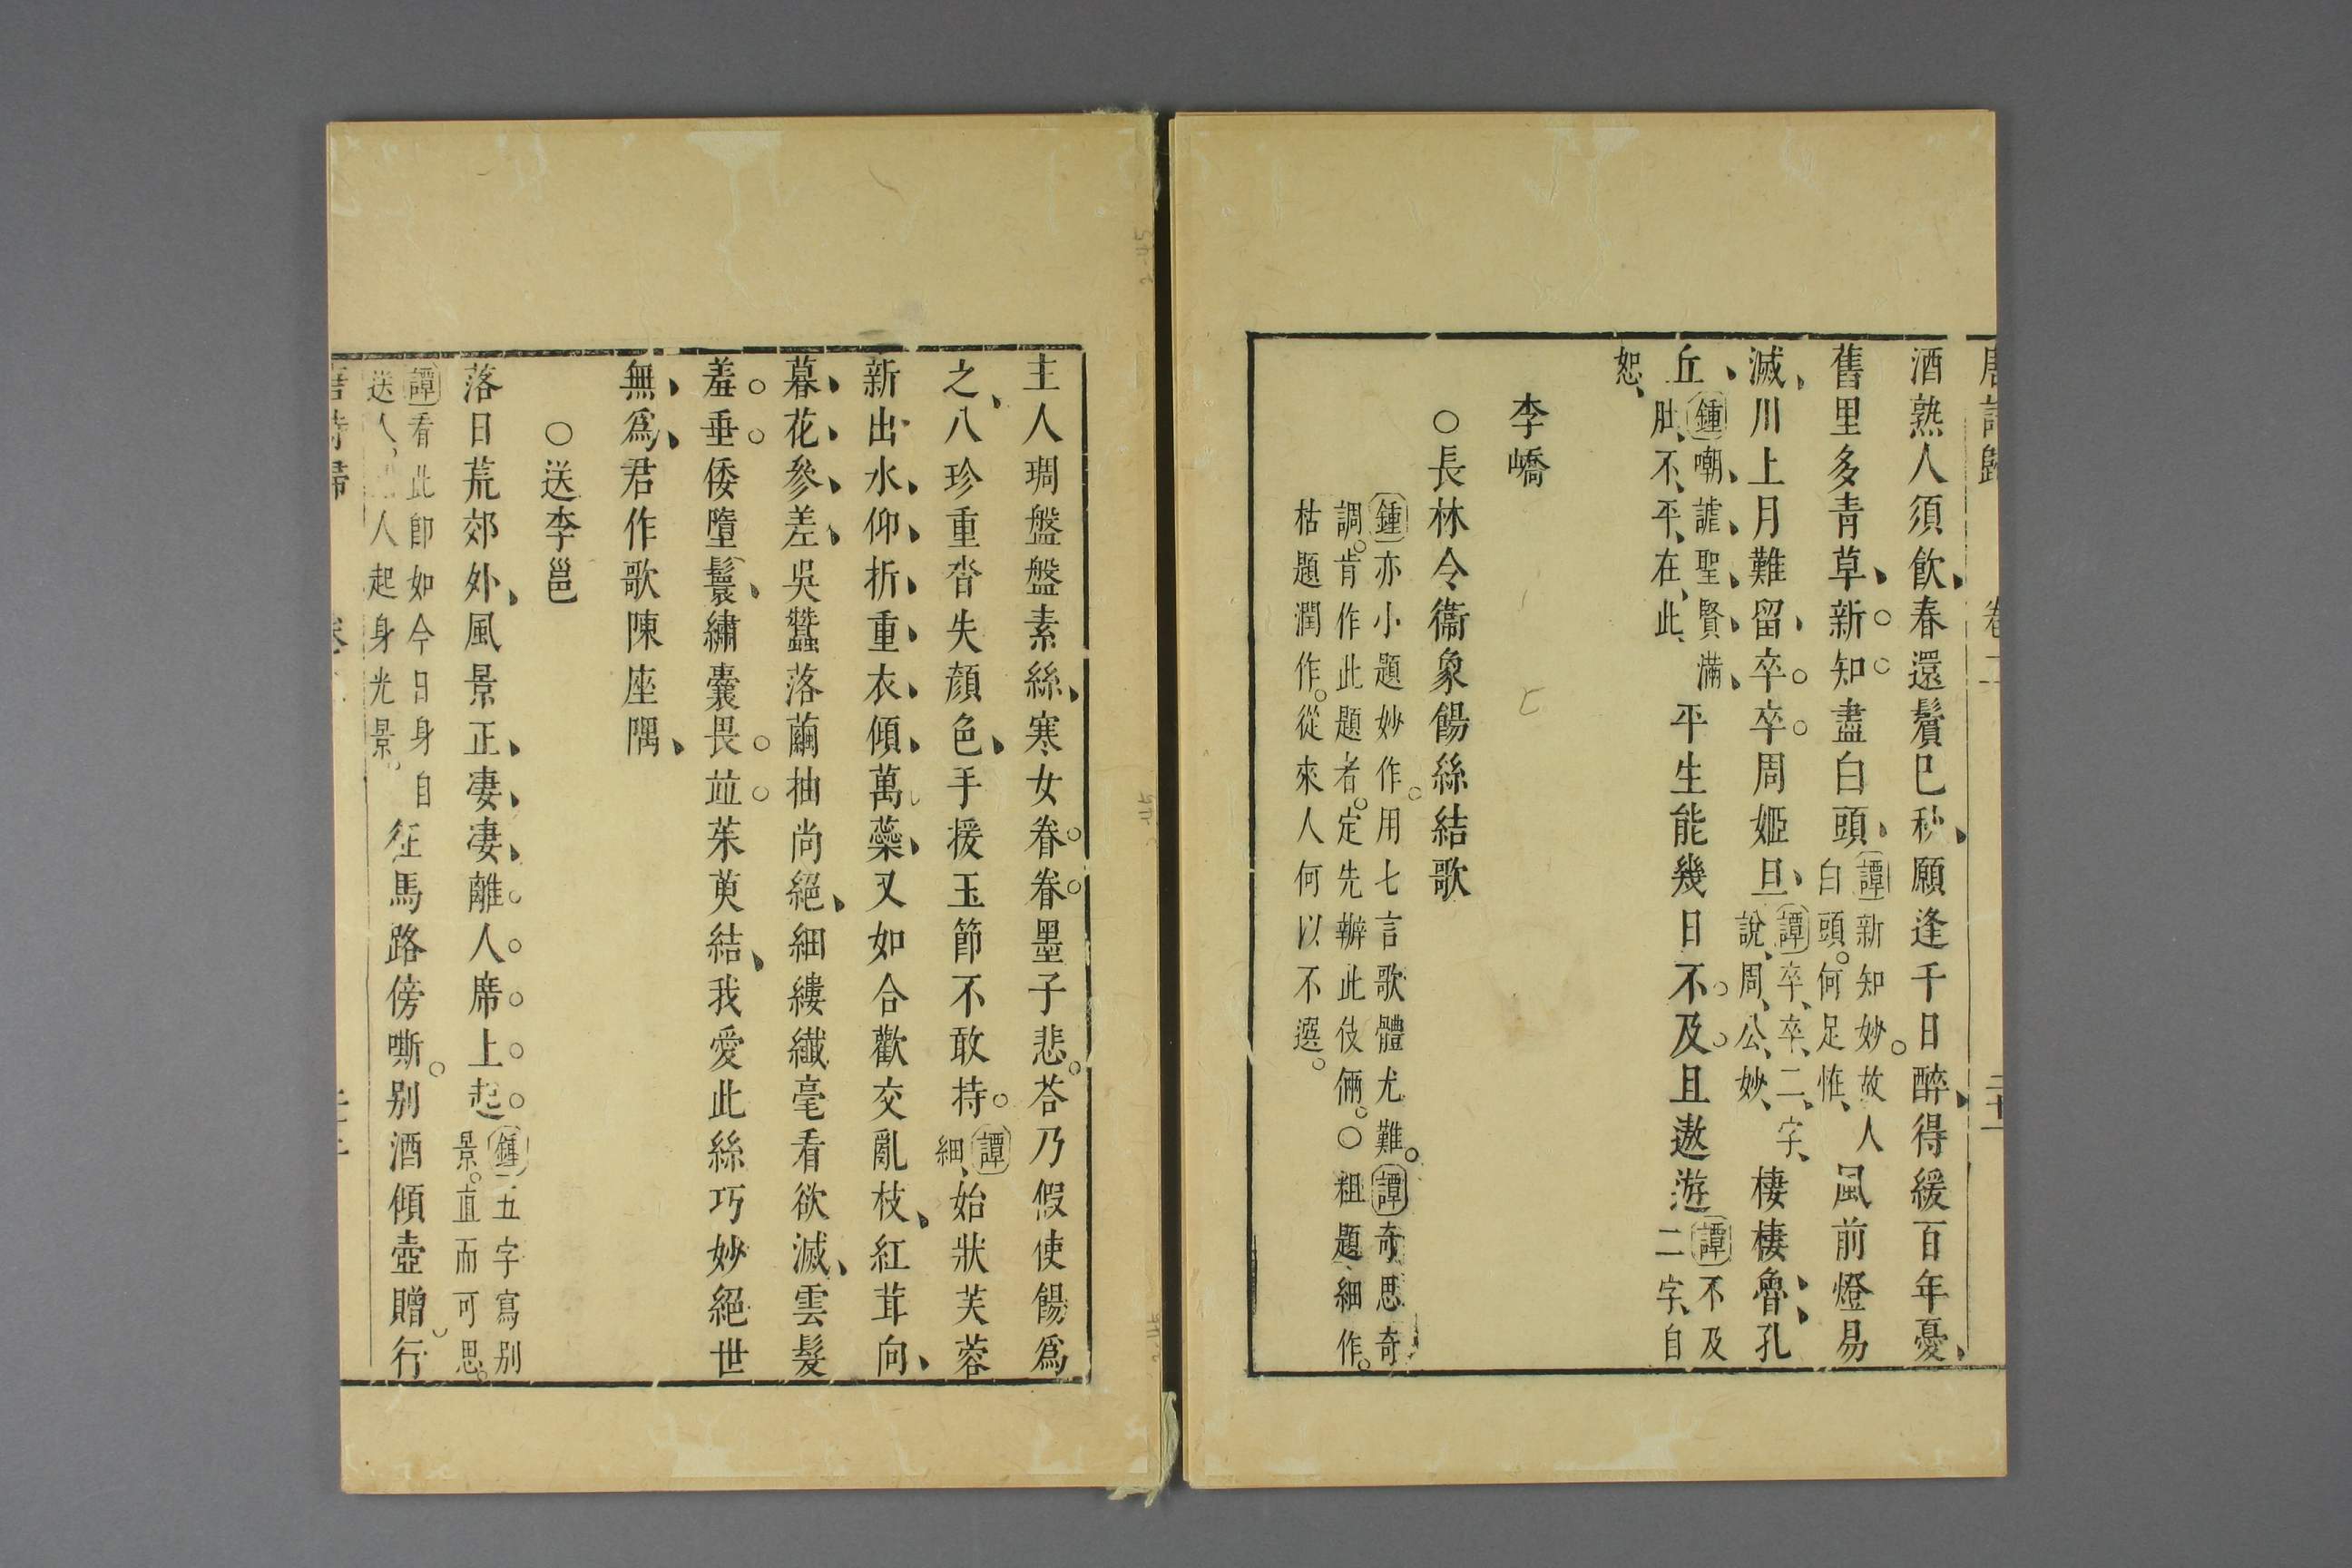 唐詩歸 卷二 二十一
酒熟人須飲春還鬢已秋願逢千日醉得緩百年憂
舊里多青草新知盡白頭
譚新知妙故人
白頭何足惟
風前燈易
滅川上月難留卒卒周姬旦
譚卒卒二字
說周公妙
棲棲魯孔
丘
鍾嘲謔聖賢滿
肚不平在此
平生能幾日不及且遨游
譚不及
二字自
恕
李嶠
○長林令衞象餳絲結歌
鍾亦小題妙作用七言歌體尤難譚奇思奇
調肯作此題者定先辦此伎倆○粗題細作
枯題潤作從來人何以不選
主人琱盤盤素絲寒女眷眷墨子悲荅乃假使餳爲
之八珍重沓失顏色手援玉節不敢持
譚
細
始狀芙蓉
新出水仰折重衣傾萬蘂又如合歡交亂枝紅茸向
暮花參差吳蠶落繭抽尚絕細縷纖毫看欲滅雲髮
羞垂倭墮鬟繡囊畏並茱萸結我愛此絲巧妙絕世
無爲君作歌陳座隅
○送李邕
落日荒郊外風景正凄凄離人席上起
鍾五字寫别
景直而可思
譚看此卽如今日身自
送人人起身光景
征馬路傍嘶别酒傾壺贈行